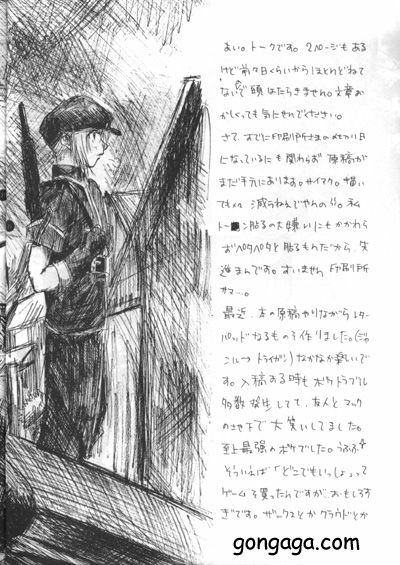 はい。トークです。2ページもある
けど前々日くらいからほとんどねて
ないので頭はたらきません。文章お
かしくっても気にせんでください。
さて、すでに印刷所さまの〆切り日
になっているにも関わらず 原稿が
まだ手元にあります。サイアク。描い
ても 減らねえでやんの。私
トーン貼るの大嫌いにもかかわら
ずペタペタと貼るもんだから、失
進まんです。すいません 印刷所
サマ…。
最近、本の原稿やりながらレター
パッドなるものを作りました。(ジャ
ンル→トライガン)なかなか楽しいで
す。入稿ある時もボケトラブル
多数発生してて、友人とマック
の地下で大笑いしてました。
至上最強のボケでした。うふふ
そういえば「どこでもいっしょ」って
ゲームを買ったんですが、おもしろす
ぎです。ザックスとかクラウドとか
gongaga.com